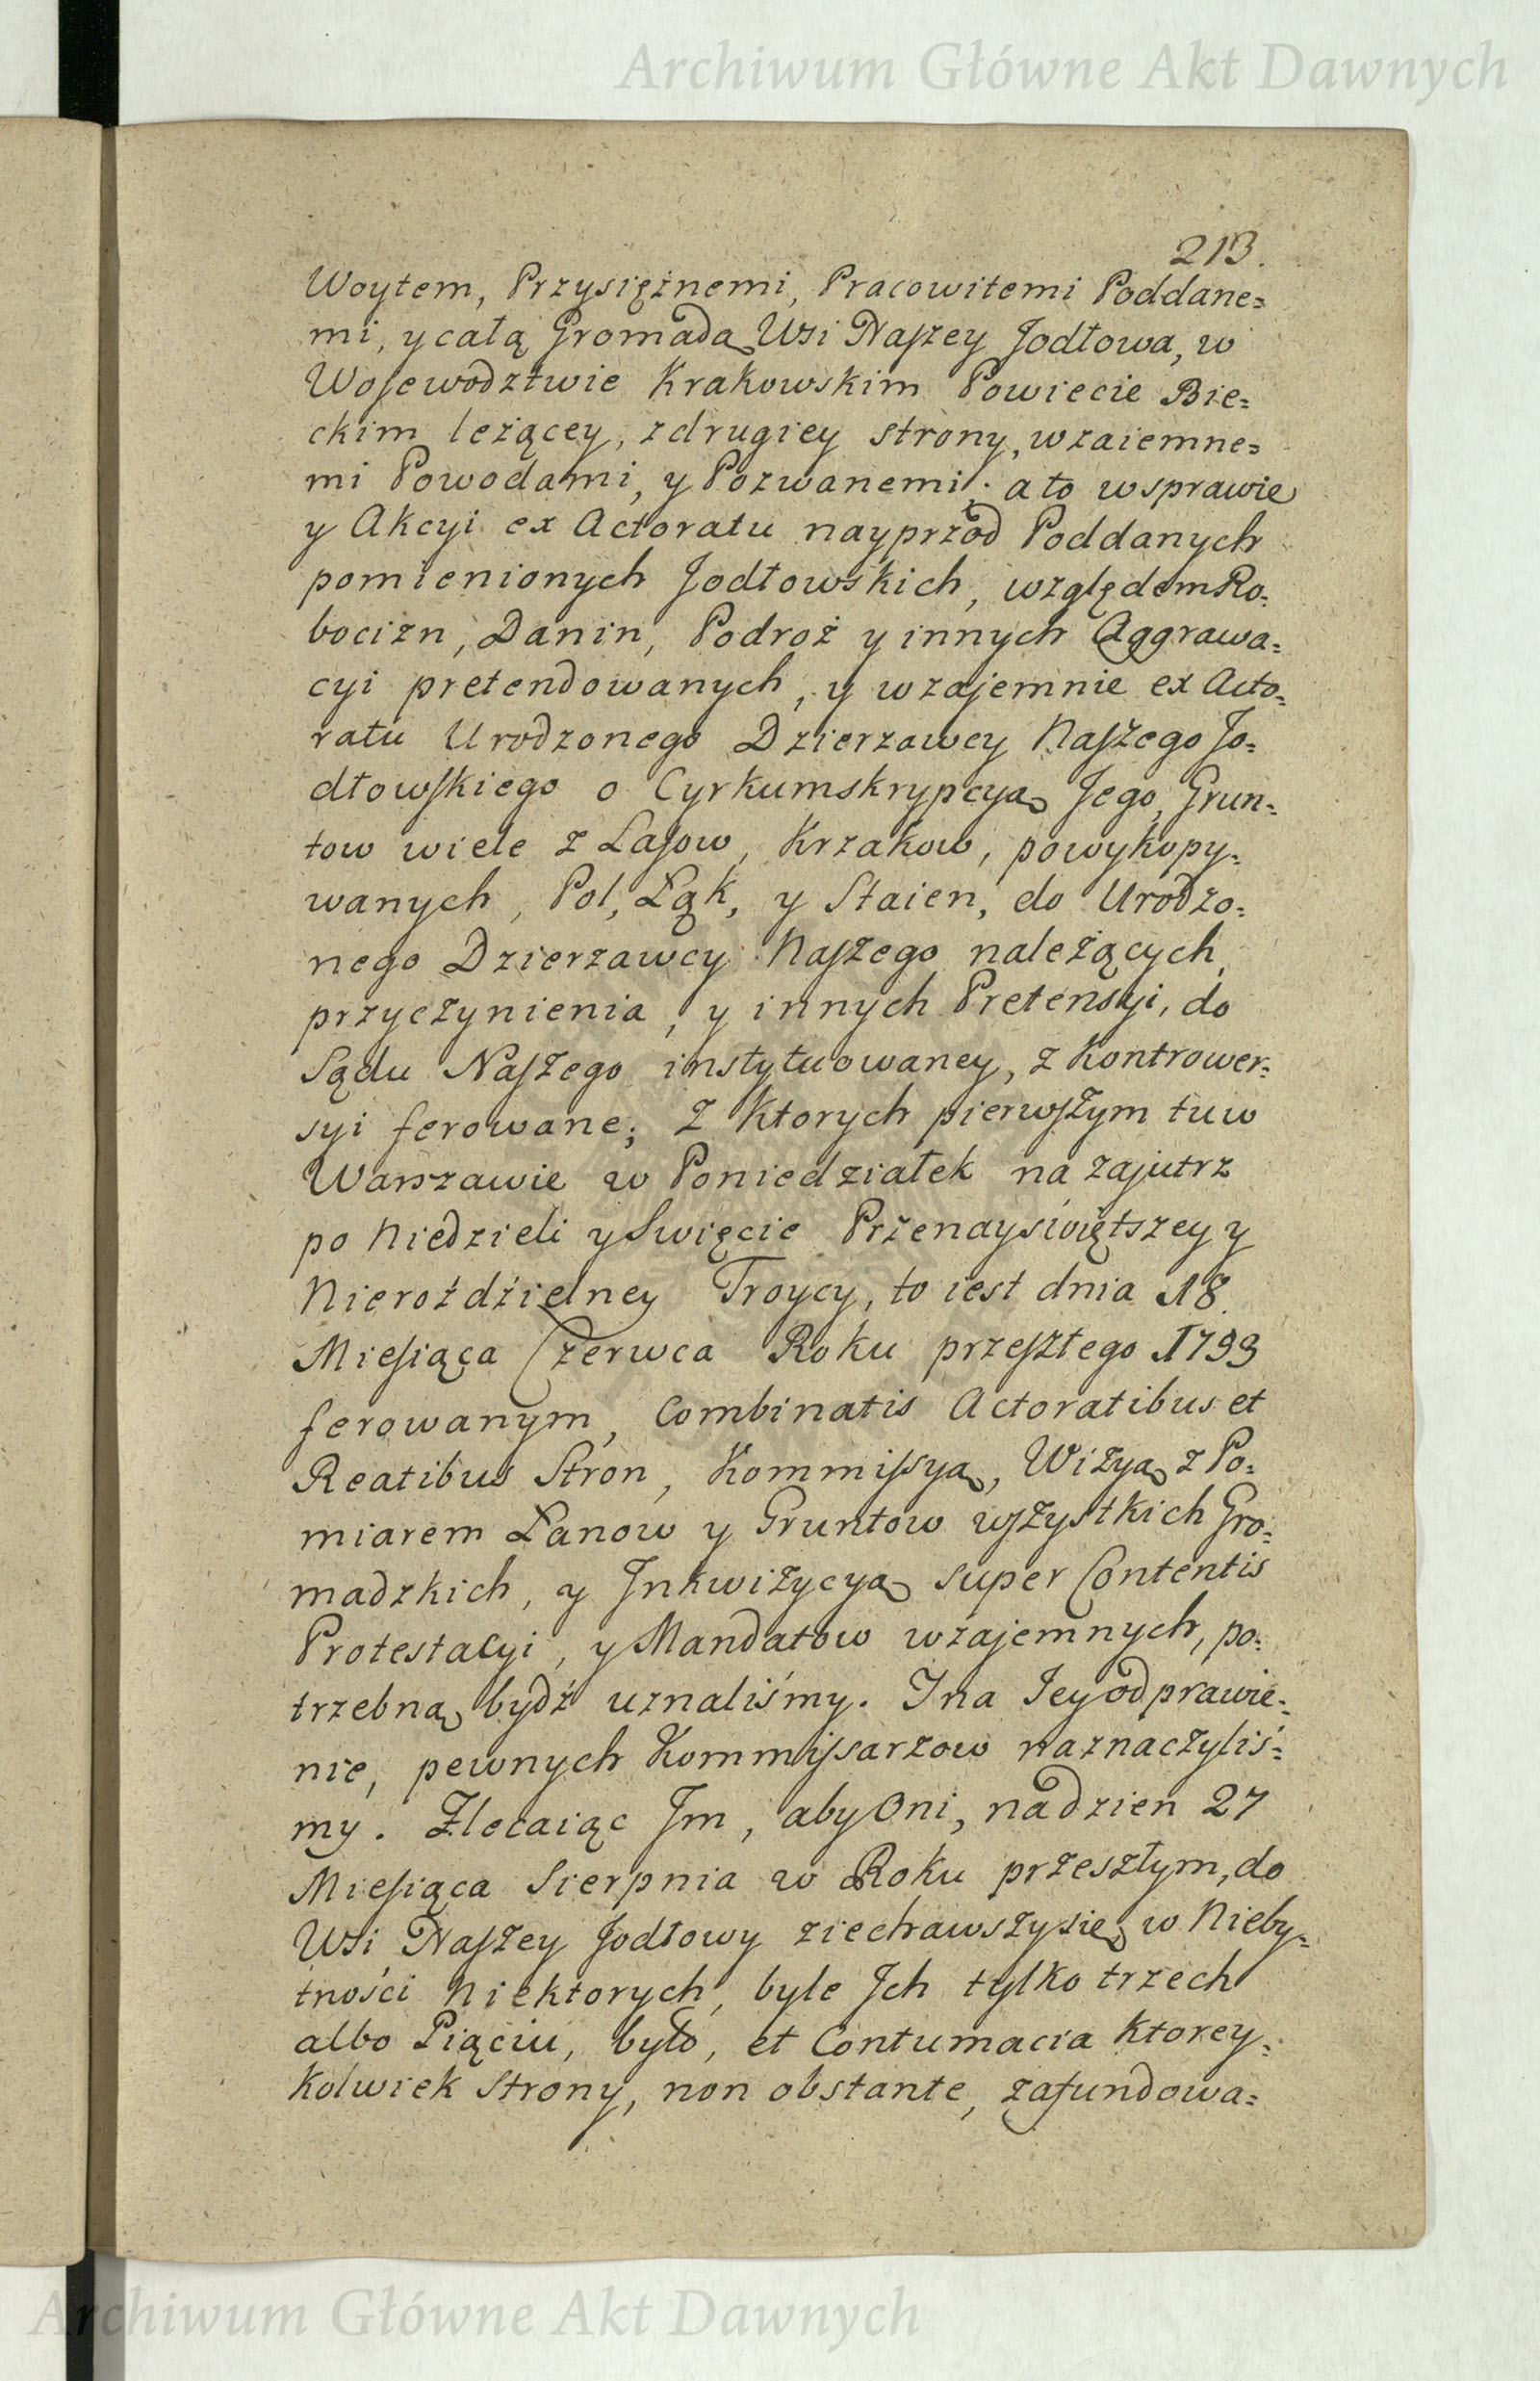 Archiwum Główne Akt Dawnych
213.
Woytem, Przysiężnemi, Pracowitemi Poddane=
mi, y całą Gromadą Wsi Naszey Jodłowa, w
Wojewodztwie Krakowskim Powiecie Bie=
ckim leżącey, z drugiey strony, wzaiemne=
mi Powodami, y Pozwanemi; a to w sprawie
y Akcyi ex Actoratu nayprzod Poddanych
pomienionych Jodłowskich, względem Ro=
bocizn, Danin, Podroż y innych Aggrawa=
cyi pretendowanych, y wzajemnie ex Acto=
ratu Urodzonego Dzierzawcy Naszego Jo=
dłowskiego o Cyrkumskrypcyą Jego, Grun=
tow wiele z Lasow, Krzakow, powykopy=
wanych, Pol, Łąk, y Staien, do Urodzo=
nego Dzierzawcy Naszego należących,
przyczynienia, y innych Pretensyi, do
Sądu Naszego instytuowaney, z Kontrower=
syi ferowane; z Ktorych pierwszym tu w
Warszawie w Poniedziałek na zajutrz
po Niedzieli y Swięcie Przenayswiętszey y
Nierozdzielney Troycy, to iest dnia 18.
Miesiąca Czerwca Roku przeszłego 1793
ferowanym, Combinatis Actoratibus et
Reatibus Stron, Kommissyą, Wizyą z Po=
miarem Łanow y Gruntow wszystkich Gro=
madzkich, y Inkwizycyą super Contentis
Protestacyi, y Mandatow wzajemnych, po=
trzebną bydź uznaliśmy. I na Jey odprawie=
nie, pewnych Kommissarzow naznaczyliś=
my. Zlecaiąc Im, aby Oni, na dzien 27
Miesiąca Sierpnia w Roku przeszłym, do
Wsi Naszey Jodłowy ziechawszy się, w Nieby=
tności Niektorych, byle Ich tylko trzech
albo Piąciu, było, et Contumacia Ktorey=
Kolwiek Strony, non obstante, zafundowa=
Archiwum Główne Akt Dawnych